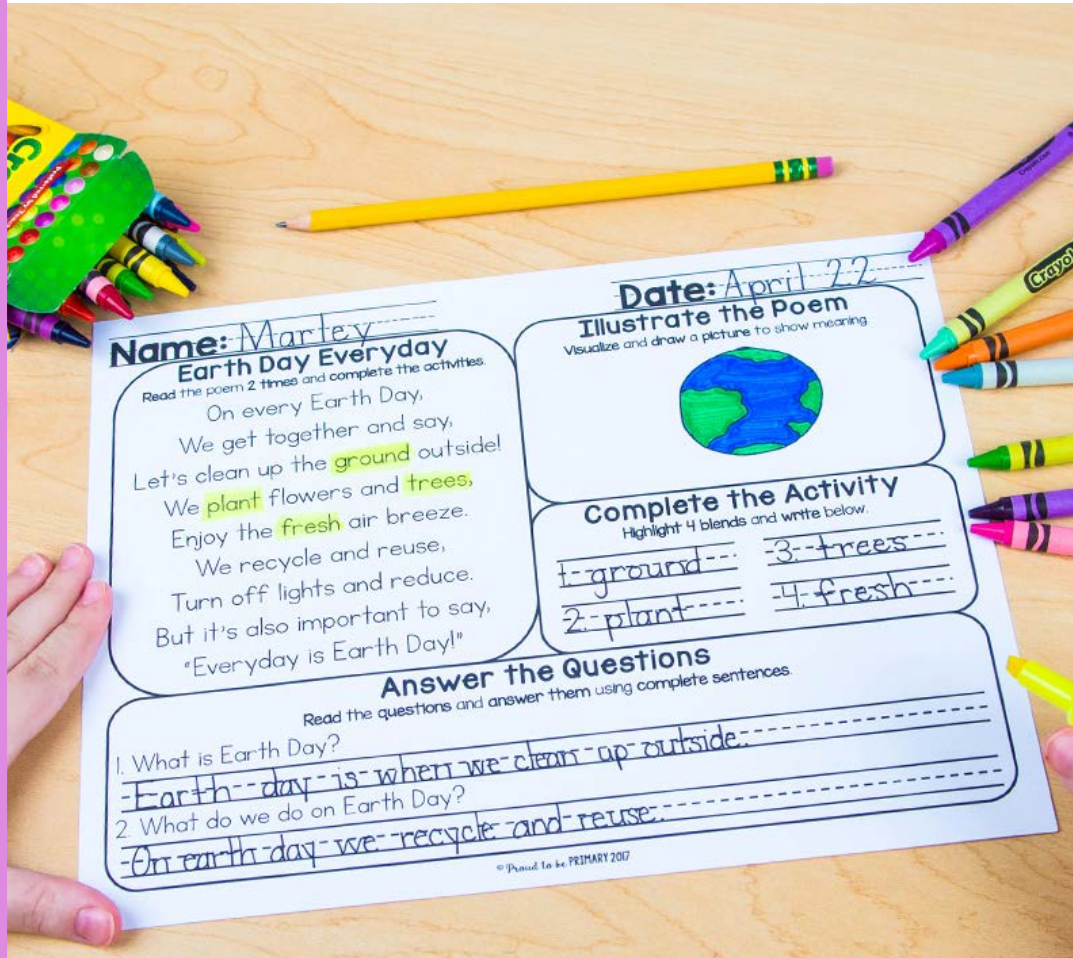 Name: Marley
Date: April 22
Earth Day Everyday
Read the poem 2 times and complete the activities.
On every Earth Day,
We get together and say,
Let's clean up the ground outside!
We plant flowers and trees,
Enjoy the fresh air breeze.
We recycle and reuse,
Turn off lights and reduce.
But it's also important to say,
"Everyday is Earth Day!"
Illustrate the Poem
Visualize and draw a picture to show meaning
Complete the Activity
Highlight 4 blends and write below.
1. ground
2. plant
3. trees
4. fresh
Answer the Questions
Read the questions and answer them using complete sentences.
1. What is Earth Day?
Earth day is when we clean up outside.
2. What do we do on Earth Day?
On earth day we recycle and reuse.
© Proud to be PRIMARY 2017
Crayol